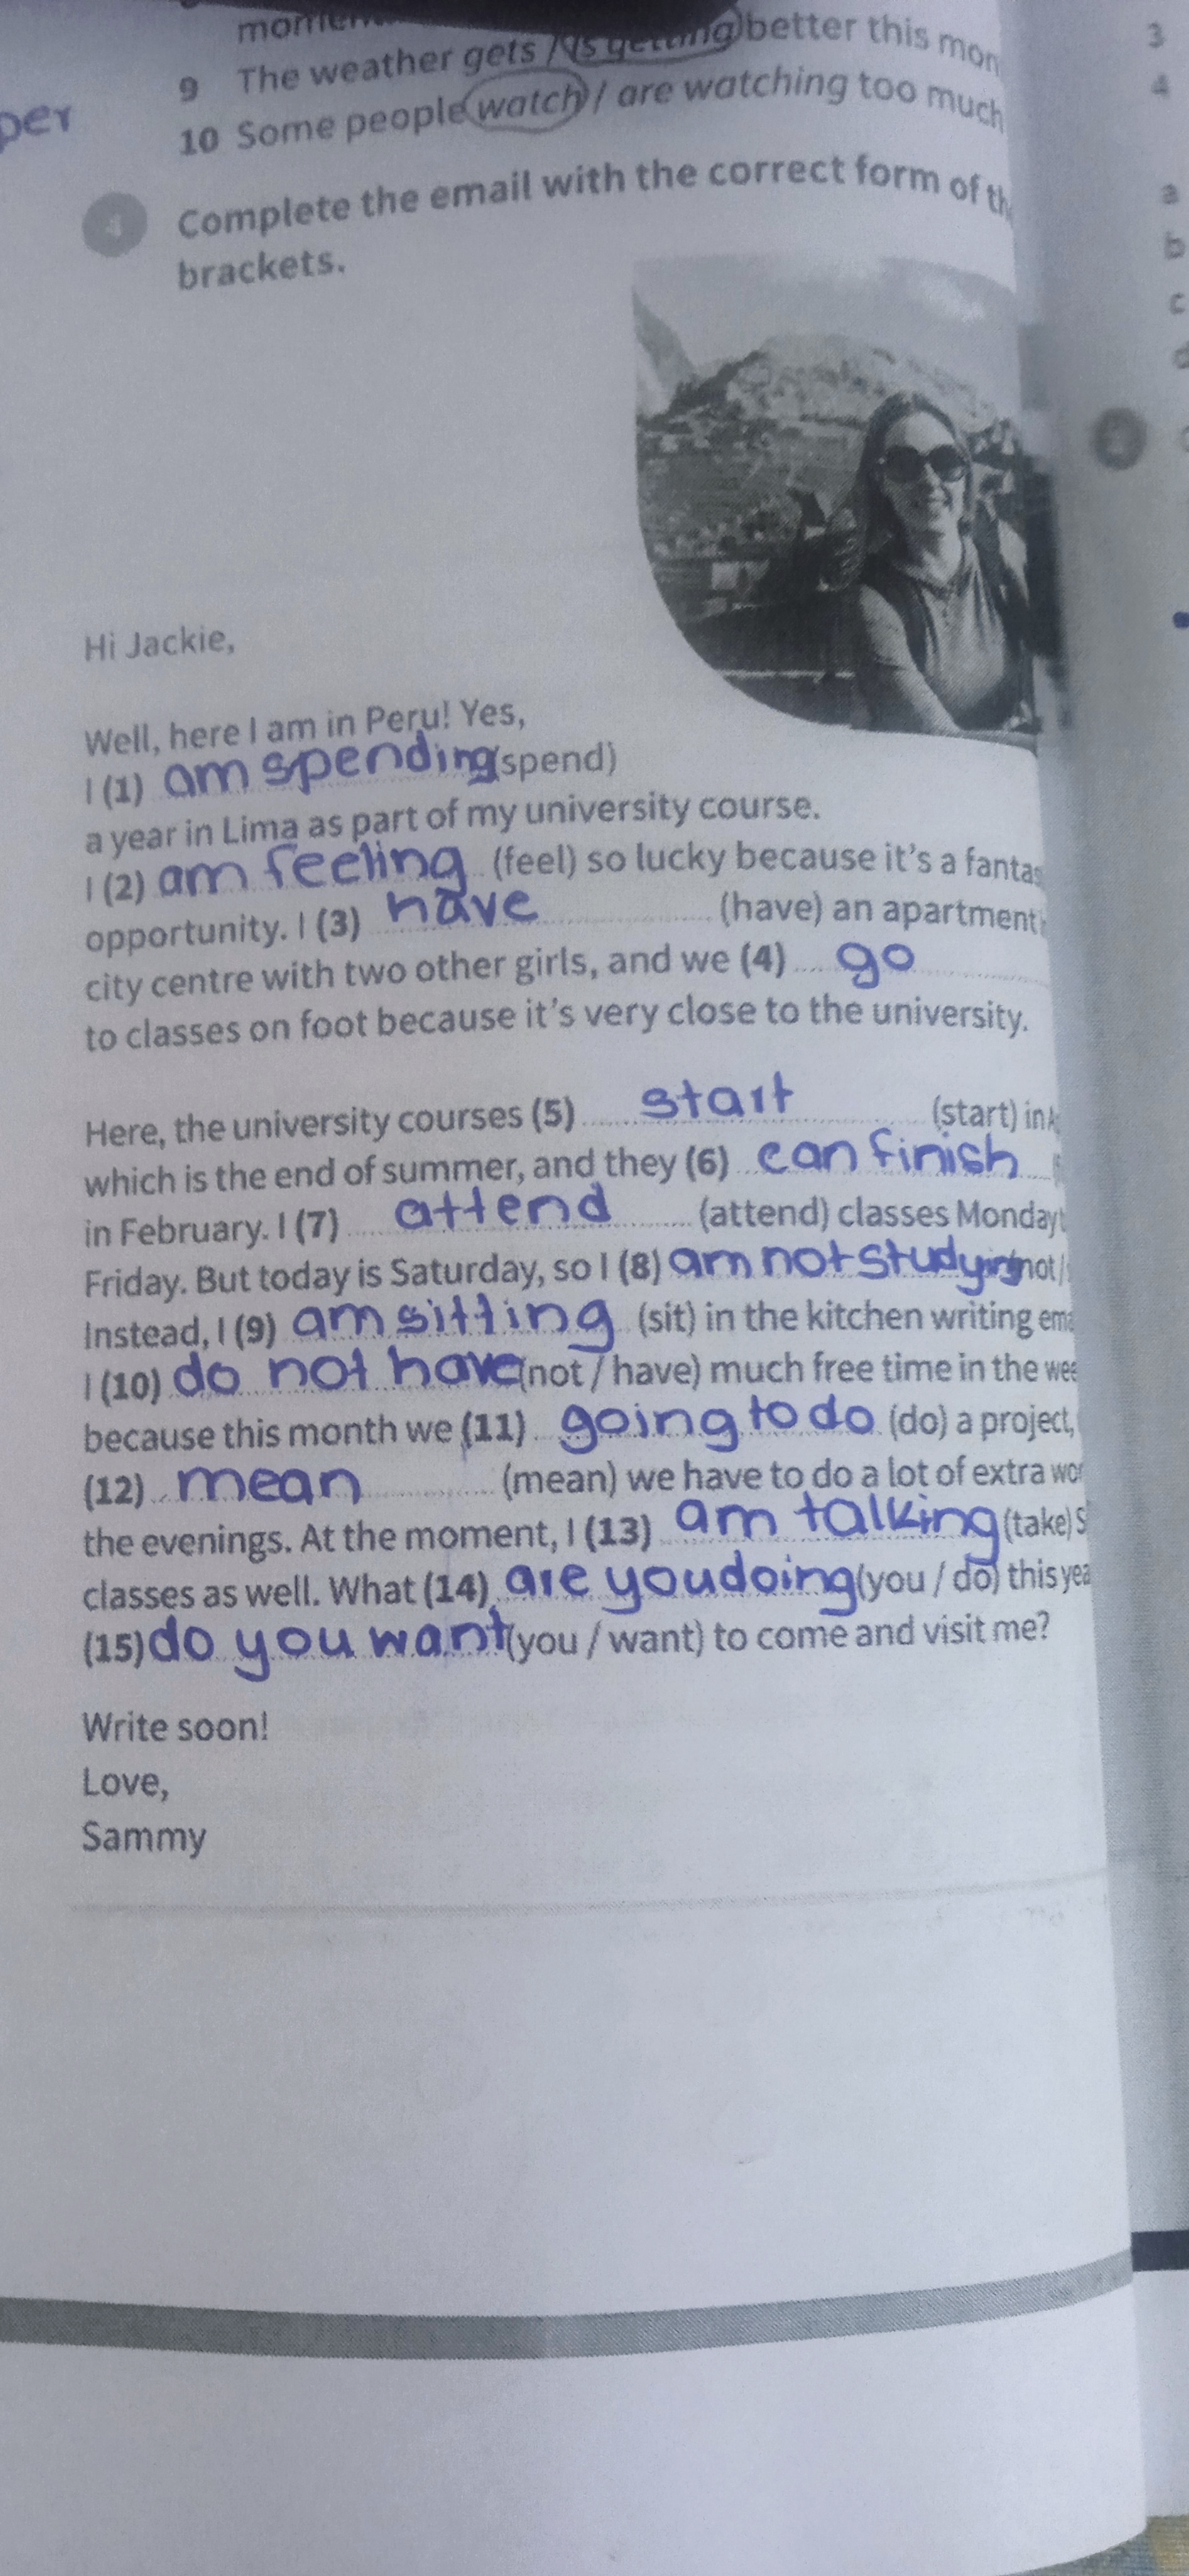 per
9 The weather gets / is getting better this mon
10 Some people watch / are watching too much
4 Complete the email with the correct form of th
brackets.
Hi Jackie,
Well, here I am in Peru! Yes,
I (1) am spending (spend)
a year in Lima as part of my university course.
I (2) am feeling (feel) so lucky because it's a fantas
opportunity. I (3) have (have) an apartment
city centre with two other girls, and we (4) go
to classes on foot because it's very close to the university.
Here, the university courses (5) start (start) in
which is the end of summer, and they (6) can finish
in February. I (7) attend (attend) classes Monday
Friday. But today is Saturday, so I (8) am not studying (not /
Instead, I (9) am sitting (sit) in the kitchen writing ema
I (10) do not have (not / have) much free time in the wee
because this month we (11) going to do (do) a project,
(12) mean (mean) we have to do a lot of extra wor
the evenings. At the moment, I (13) am talking (take) S
classes as well. What (14) are you doing (you / do) this yea
(15) do you want (you / want) to come and visit me?
Write soon!
Love,
Sammy
3
4
a
b
c
d